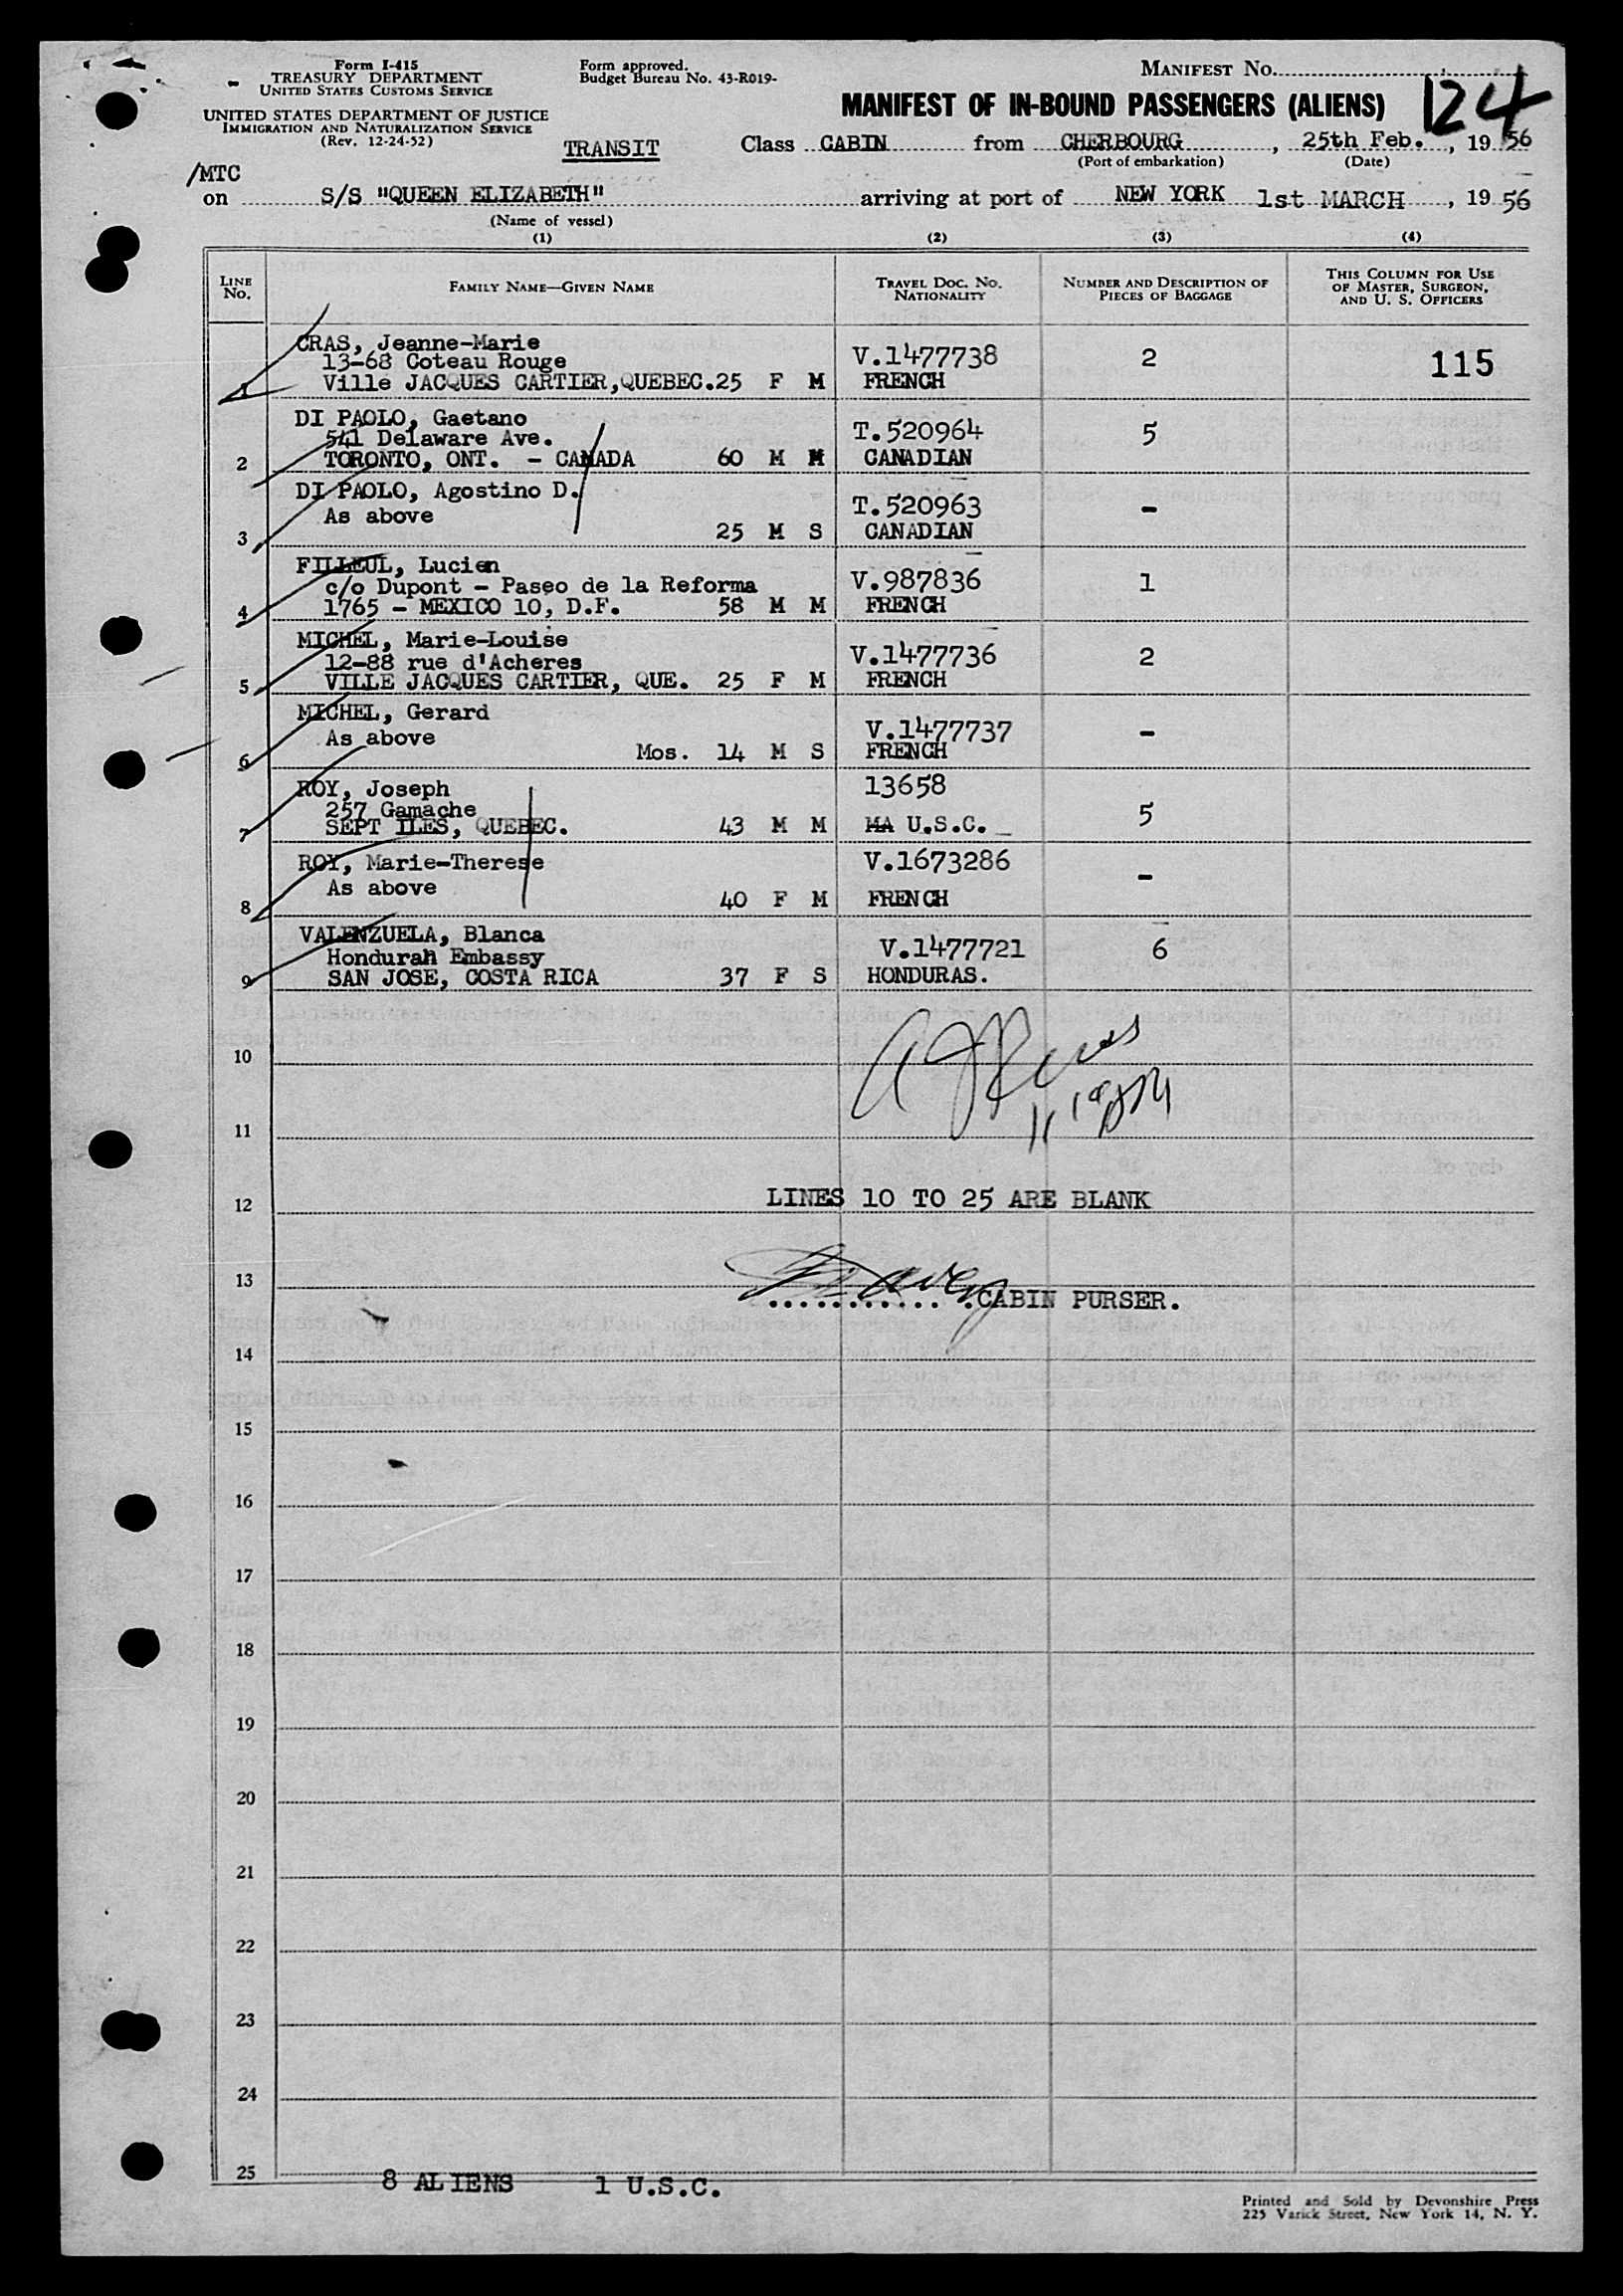 Form I-415
TREASURY DEPARTMENT
UNITED STATES CUSTOMS SERVICE
UNITED STATES DEPARTMENT OF JUSTICE
IMMIGRATION AND NATURALIZATION SERVICE
(Rev. 12-24-52)
Form approved.
Budget Bureau No. 43-R019-
MANIFEST No.
124
MANIFEST OF IN-BOUND PASSENGERS (ALIENS)
TRANSIT
Class CABIN from CHERBOURG, 25th Feb., 1956
(Port of embarkation) (Date)
/MTC
on S/S "QUEEN ELIZABETH" arriving at port of NEW YORK 1st MARCH, 1956
(Name of vessel)
(1) (2) (3) (4)
LINE No. FAMILY NAME—GIVEN NAME TRAVEL DOC. No. NATIONALITY NUMBER AND DESCRIPTION OF PIECES OF BAGGAGE THIS COLUMN FOR USE OF MASTER, SURGEON, AND U. S. OFFICERS
CRAS, Jeanne-Marie
13-68 Coteau Rouge V.1477738 2 115
1 Ville JACQUES CARTIER,QUEBEC.25 F M FRENCH
DI PAOLO, Gaetano
541 Delaware Ave. T.520964 5
2 TORONTO, ONT. - CANADA 60 M M CANADIAN
DI PAOLO, Agostino D.
As above T.520963 -
3 25 M S CANADIAN
FILLEUL, Lucien
c/o Dupont - Paseo de la Reforma V.987836 1
4 1765 - MEXICO 10, D.F. 58 M M FRENCH
MICHEL, Marie-Louise
12-88 rue d'Acheres V.1477736 2
5 VILLE JACQUES CARTIER, QUE. 25 F M FRENCH
MICHEL, Gerard
As above V.1477737 -
6 Mos. 14 M S FRENCH
ROY, Joseph 13658
257 Gamache 5
7 SEPT ILES, QUEBEC. 43 M M MA U.S.C.
ROY, Marie-Therese V.1673286
As above -
8 40 F M FRENCH
VALENZUELA, Blanca
Hondurah Embassy V.1477721 6
9 SAN JOSE, COSTA RICA 37 F S HONDURAS.
10
11
12 LINES 10 TO 25 ARE BLANK
13
............CABIN PURSER.
14
15
16
17
18
19
20
21
22
23
24
25
8 ALIENS 1 U.S.C.
Printed and Sold by Devonshire Press
225 Varick Street, New York 14, N. Y.